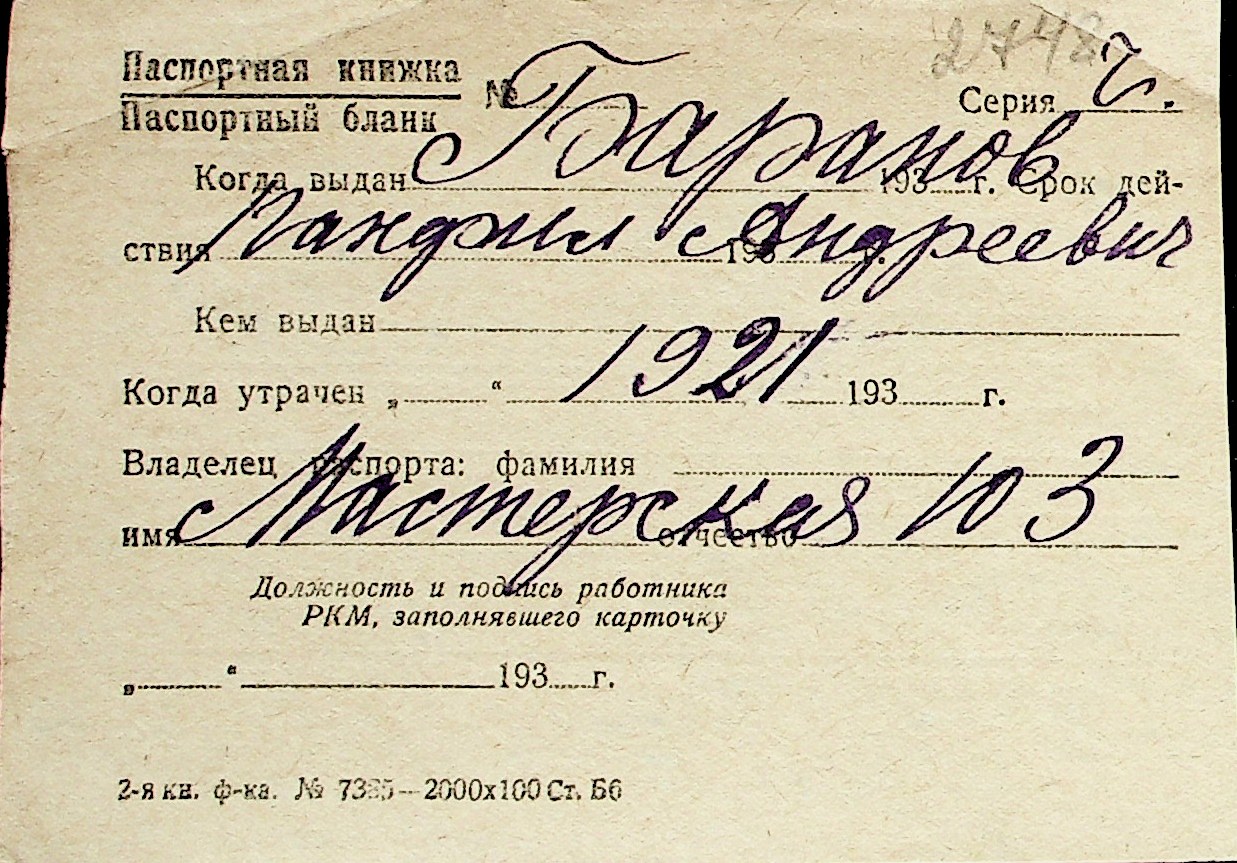 2748
Паспортная книжка
Паспортный бланк
№ Серия
Баранов
Когда выдан 193 г. Срок дей-
Панфил Андреевич
ствия 193 г.
Кем выдан
1921
Когда утрачен „ “ 193 г.
Владелец паспорта: фамилия
Мастерская 103
имя отчество
Должность и подпись работника
РКМ, заполнявшего карточку
„ “ 193 г.
2-я кн. ф-ка. № 7385—2000х100 Ст. Б6